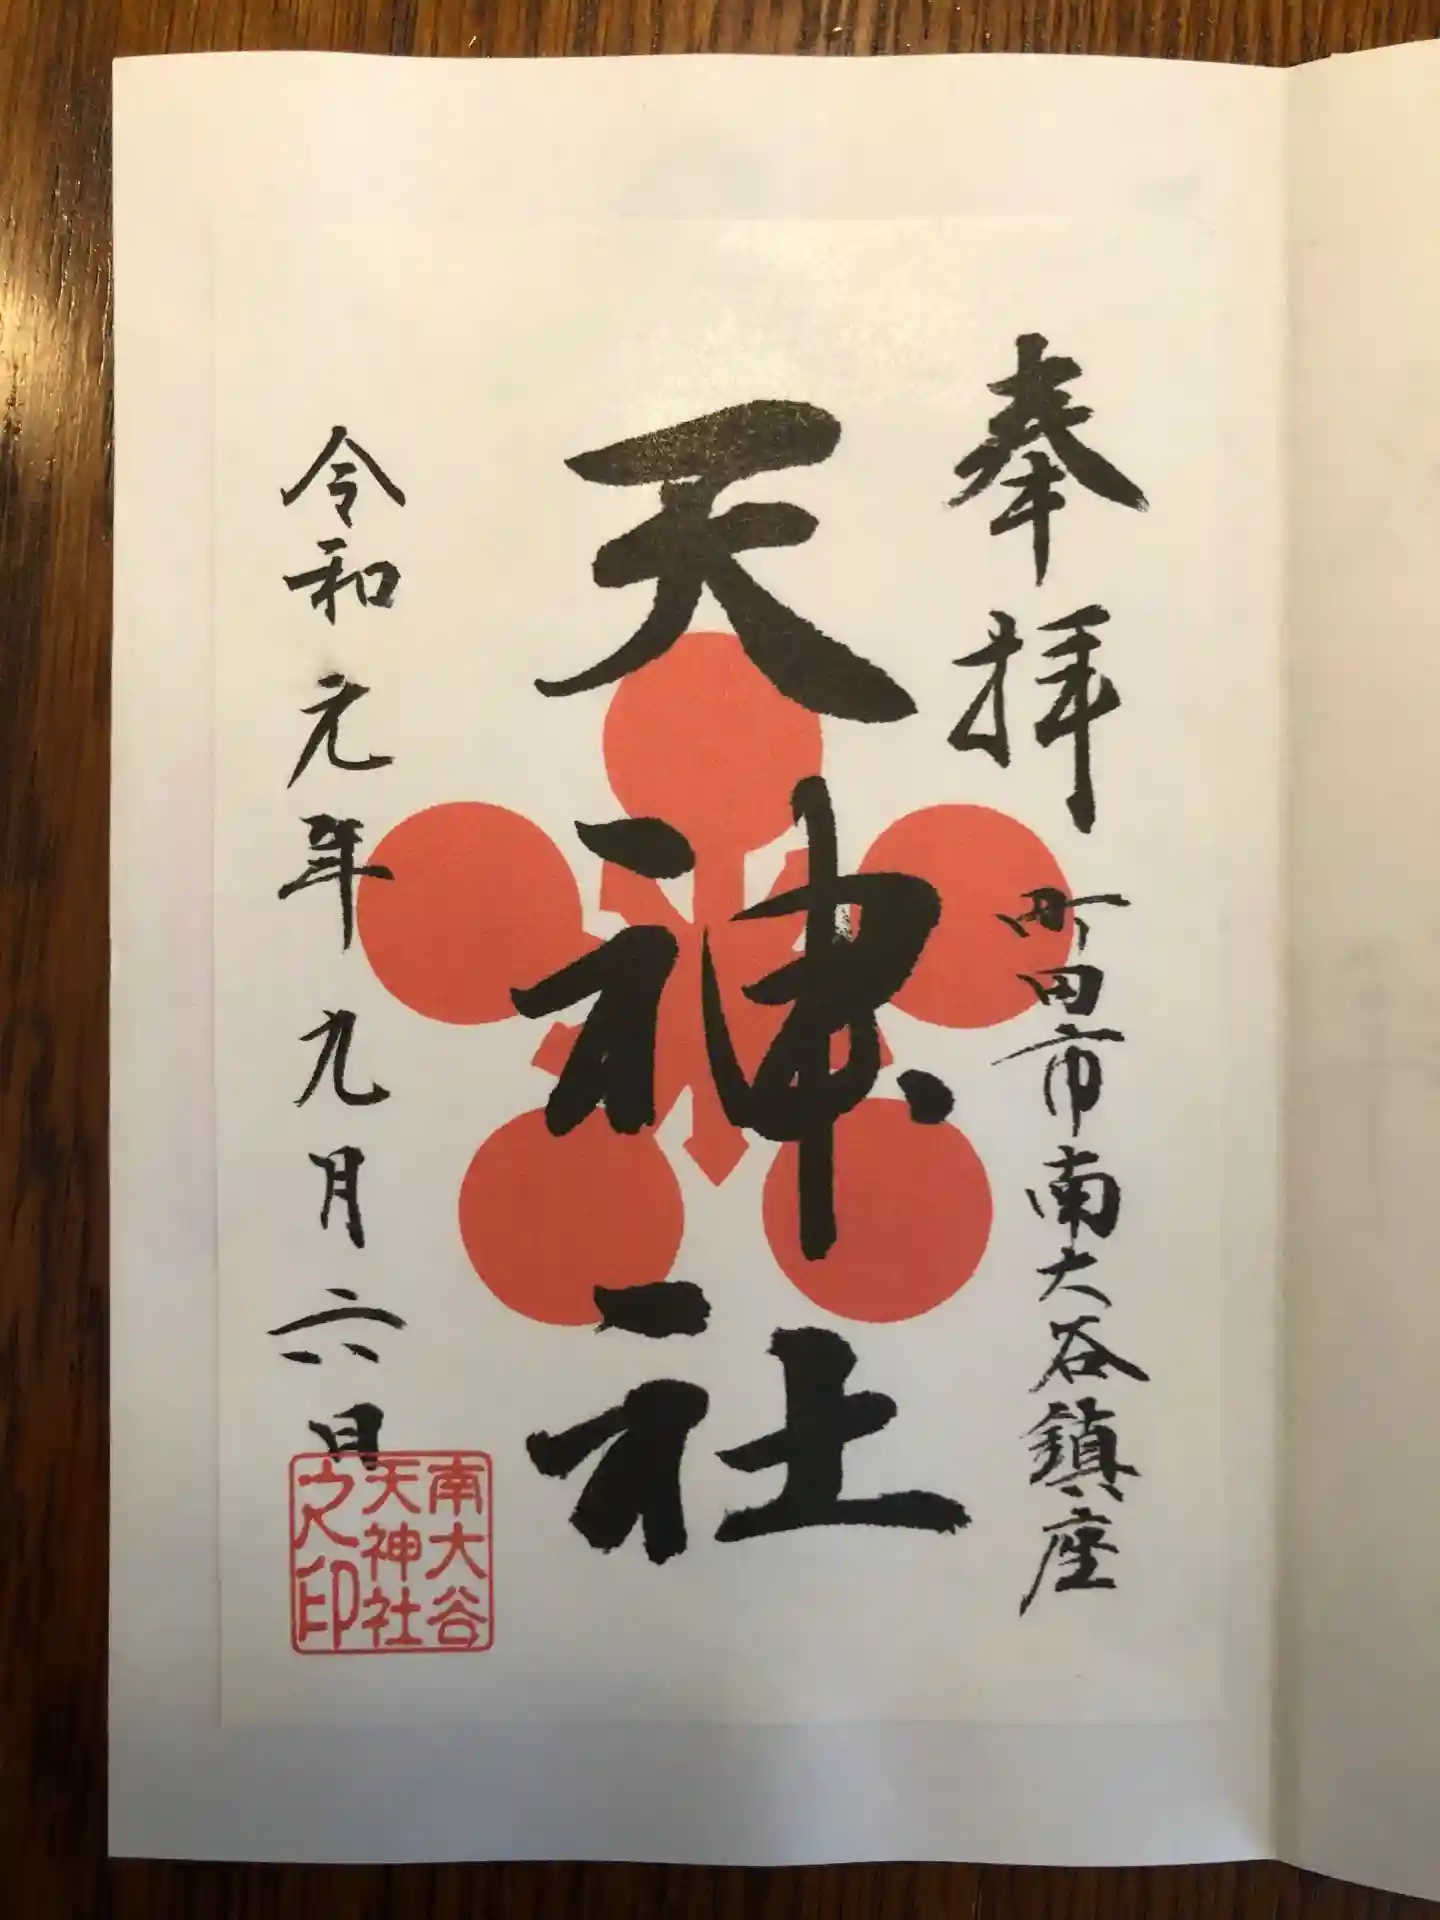 奉拝
町田市南大谷鎮座
天神社
令和元年九月六日
南大谷
天神社
之印